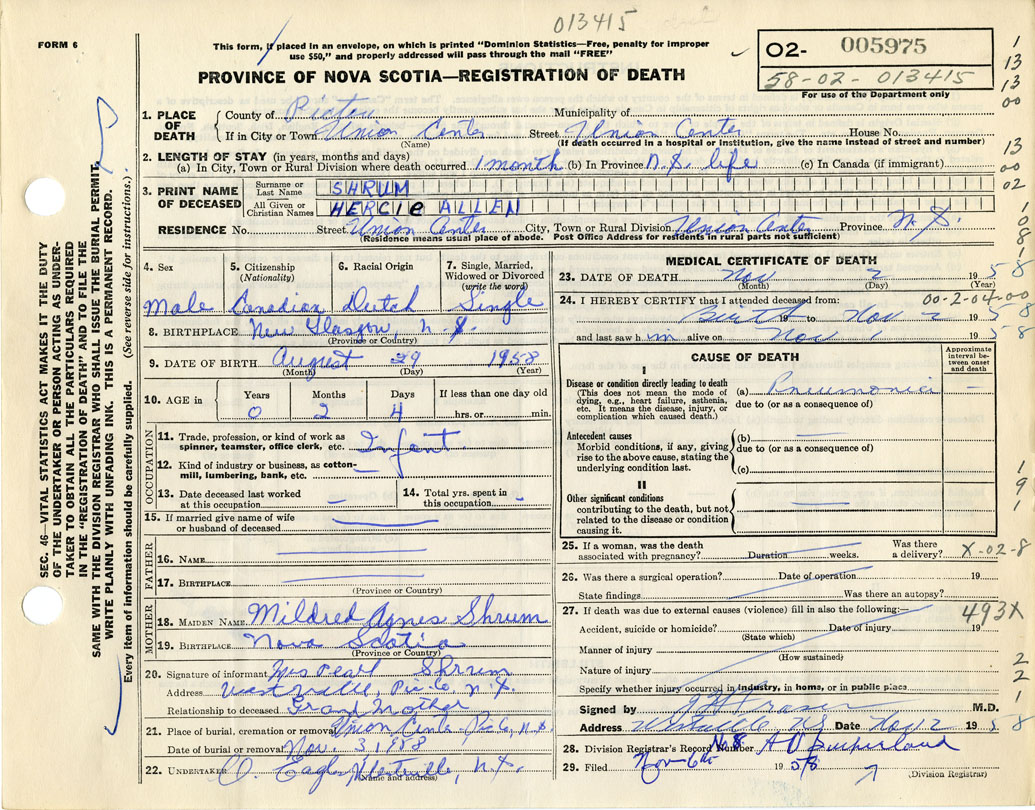 013415
FORM 6
This form, if placed in an envelope, on which is printed "Dominion Statistics—Free, penalty for improper
use $50," and properly addressed will pass through the mail "FREE"
02- 005975
58-02-013415
For use of the Department only
PROVINCE OF NOVA SCOTIA—REGISTRATION OF DEATH
1
13
13
00
13
00
02
1
0
8
1
SEC. 46—VITAL STATISTICS ACT MAKES IT THE DUTY
OF THE UNDERTAKER OR PERSON ACTING AS UNDER-
TAKER TO OBTAIN ALL THE PARTICULARS REQUIRED
IN THE "REGISTRATION OF DEATH" AND TO FILE THE
SAME WITH THE DIVISION REGISTRAR WHO SHALL ISSUE THE BURIAL PERMIT.
WRITE PLAINLY WITH UNFADING INK. THIS IS A PERMANENT RECORD.
Every item of information should be carefully supplied. (See reverse side for instructions.)
1. PLACE OF DEATH
County of Pictou Municipality of
If in City or Town Union Center Street Union Center House No.
(Name) (If death occurred in a hospital or institution, give the name instead of street and number)
2. LENGTH OF STAY (in years, months and days)
(a) In City, Town or Rural Division where death occurred 1 month (b) In Province N.S. life (c) In Canada (if immigrant)
3. PRINT NAME OF DECEASED
Surname or Last Name SHRUM
All Given or Christian Names HERCIE ALLEN
RESIDENCE No. Street Union Center City, Town or Rural Division Union Center Province N.S.
(Residence means usual place of abode. Post Office Address for residents in rural parts not sufficient)
4. Sex 5. Citizenship (Nationality) 6. Racial Origin 7. Single, Married, Widowed or Divorced (write the word)
Male Canadian Dutch Single
8. BIRTHPLACE New Glasgow, N.S.
(Province or Country)
9. DATE OF BIRTH August 29 1958
(Month) (Day) (Year)
10. AGE in Years Months Days If less than one day old
0 2 4 hrs. or min.
OCCUPATION
11. Trade, profession, or kind of work as
spinner, teamster, office clerk, etc. Infant
12. Kind of industry or business, as cotton-
mill, lumbering, bank, etc. —
13. Date deceased last worked
at this occupation —
14. Total yrs. spent in
this occupation -
15. If married give name of wife
or husband of deceased
FATHER
16. NAME
17. BIRTHPLACE
(Province or Country)
MOTHER
18. MAIDEN NAME Mildred Agnes Shrum
19. BIRTHPLACE Nova Scotia
(Province or Country)
20. Signature of informant Mrs Pearl Shrum
Address Westville, Pic. Co, N.S.
Relationship to deceased Grand Mother
21. Place of burial, cremation or removal Union Center Pic Co, N.S.
Date of burial or removal Nov. 3, 1958
22. UNDERTAKER Westville, N.S.
(Name and address)
MEDICAL CERTIFICATE OF DEATH
23. DATE OF DEATH Nov 2 1958
(Month) (Day) (Year)
24. I HEREBY CERTIFY that I attended deceased from: 00-2-04-00
Birth 19 to Nov 2 1958
and last saw him alive on Nov 1 1958
CAUSE OF DEATH
Approximate interval between onset and death
I
Disease or condition directly leading to death
(This does not mean the mode of
dying, e.g., heart failure, asthenia,
etc. It means the disease, injury, or
complication which caused death.)
(a) Pneumonia —
due to (or as a consequence of)
Antecedent causes
Morbid conditions, if any, giving
rise to the above cause, stating the
underlying condition last.
(b) —
due to (or as a consequence of)
(c)
II
Other significant conditions
contributing to the death, but not
related to the disease or condition
causing it.
1
9
1
25. If a woman, was the death
associated with pregnancy? Duration weeks. Was there a delivery? X-02-8
26. Was there a surgical operation? Date of operation 19
State findings Was there an autopsy?
27. If death was due to external causes (violence) fill in also the following:— 493X
Accident, suicide or homicide? Date of injury 19
(State which)
Manner of injury
(How sustained)
Nature of injury
Specify whether injury occurred in industry, in home, or in public place
2
2
1
Signed by J H Fraser M.D.
Address Westville NS Date Nov 2 1958
28. Division Registrar's Record Number No. 8 A D Sutherland
29. Filed Nov 6th 1958
(Division Registrar)